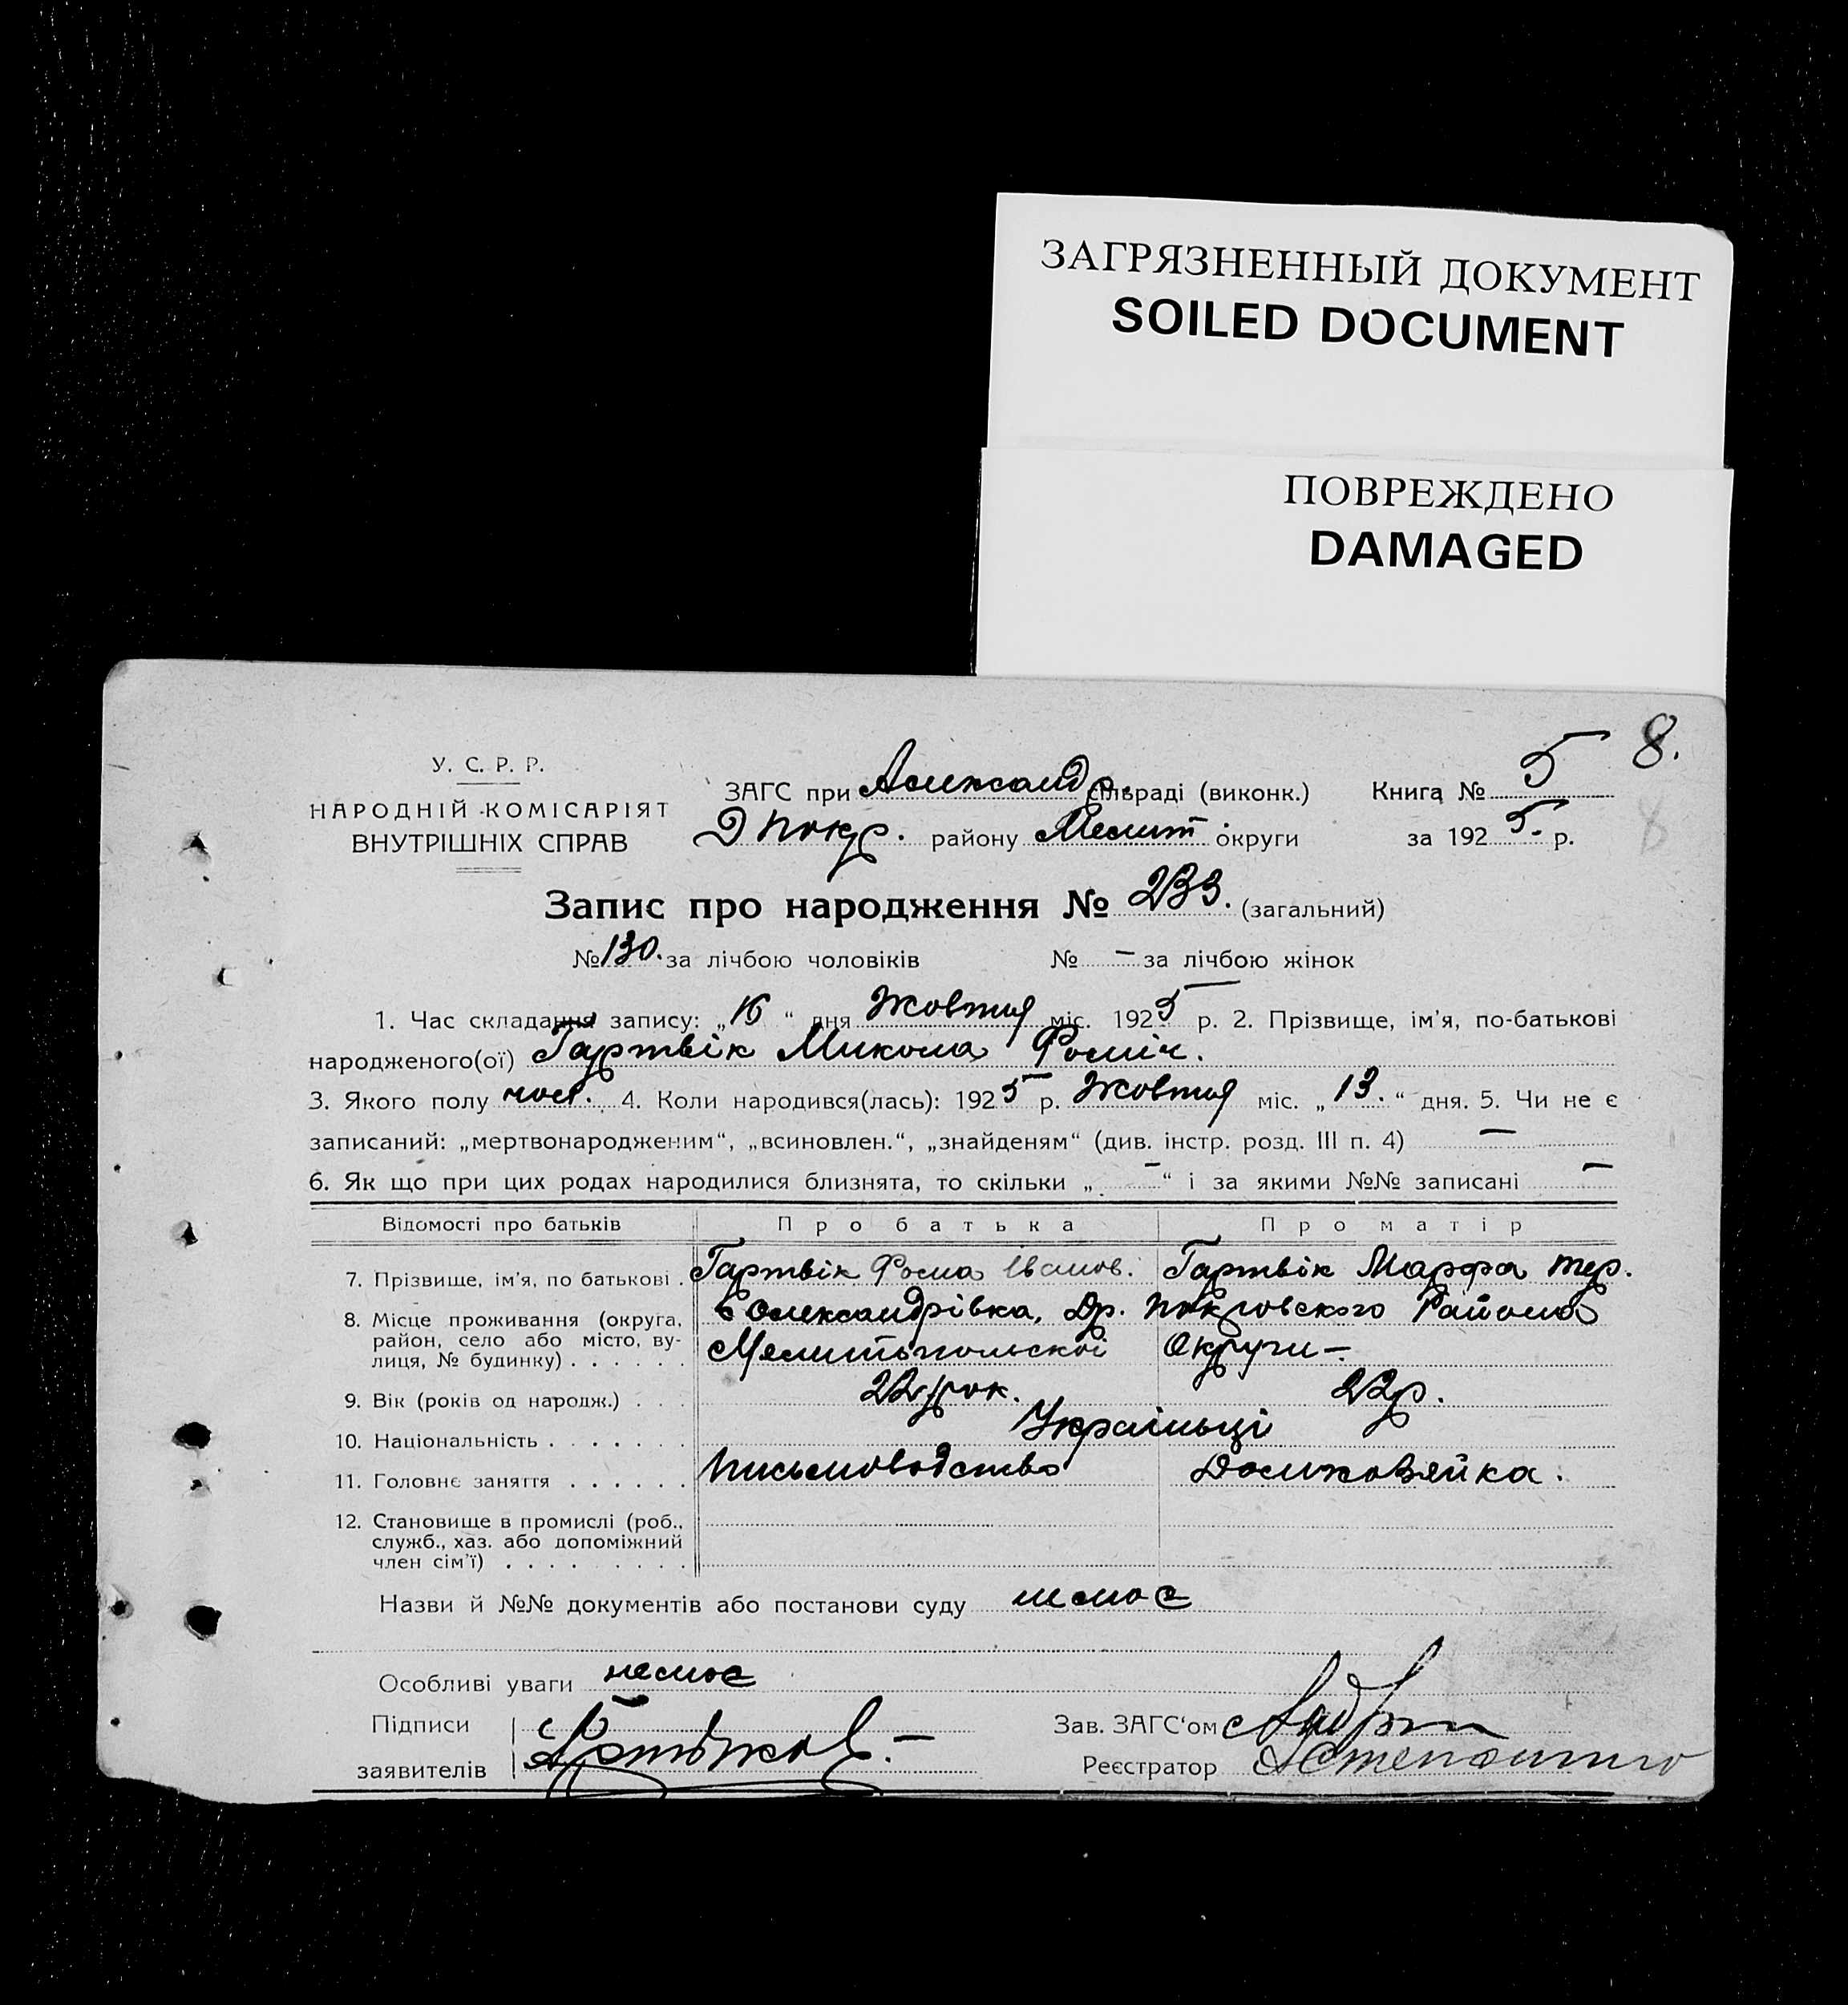 ЗАГРЯЗНЕННЫЙ ДОКУМЕНТ
SOILED DOCUMENT
ПОВРЕЖДЕНО
DAMAGED
8.
8
У. С. Р. Р.
НАРОДНІЙ КОМІСАРІЯТ
ВНУТРІШНІХ СПРАВ
ЗАГС при Александр. сільраді (виконк.) Книга № 5
Д Покр. району Мелит округи за 1925 р.
Запис про народження № 233. (загальний)
№ 130. за лічбою чоловіків № — за лічбою жінок
1. Час складання запису: „16“ дня Жовтня міс. 1925 р. 2. Прізвище, ім'я, по-батькові
народженого(ої) Гартвік Микола Фоміч.
3. Якого полу чол. 4. Коли народився(лась): 1925 р. Жовтня міс. „13.“ дня. 5. Чи не є
записаний: „мертвонародженим“, „всиновлен.“, „знайденям“ (див. інстр. розд. III п. 4) —
6. Як що при цих родах народилися близнята, то скільки „ — “ і за якими №№ записані —
Відомості про батьків Про батька Про матір
7. Прізвище, ім'я, по батькові . Гартвік Фома Іванов. Гартвік Марфа тер.
8. Місце проживання (округа, с Олександрівка, Др. Покровского Району
район, село або місто, ву-
лиця, № будинку) . . . . . . Мелитопольскої Округи —.
9. Вік (років од народж.) . . . 22 рок. 22 р.
10. Національність . . . . . . . Українці
11. Головнє заняття . . . . . . Письмоводство Домховяйка.
12. Становище в промислі (роб.,
служб., хаз. або допоміжний
член сім'ї) . . . . . . . . .
Назви й №№ документів або постанови суду немає
Особливі уваги немає
Підписи
заявителів
Зав. ЗАГС'ом
Реєстратор